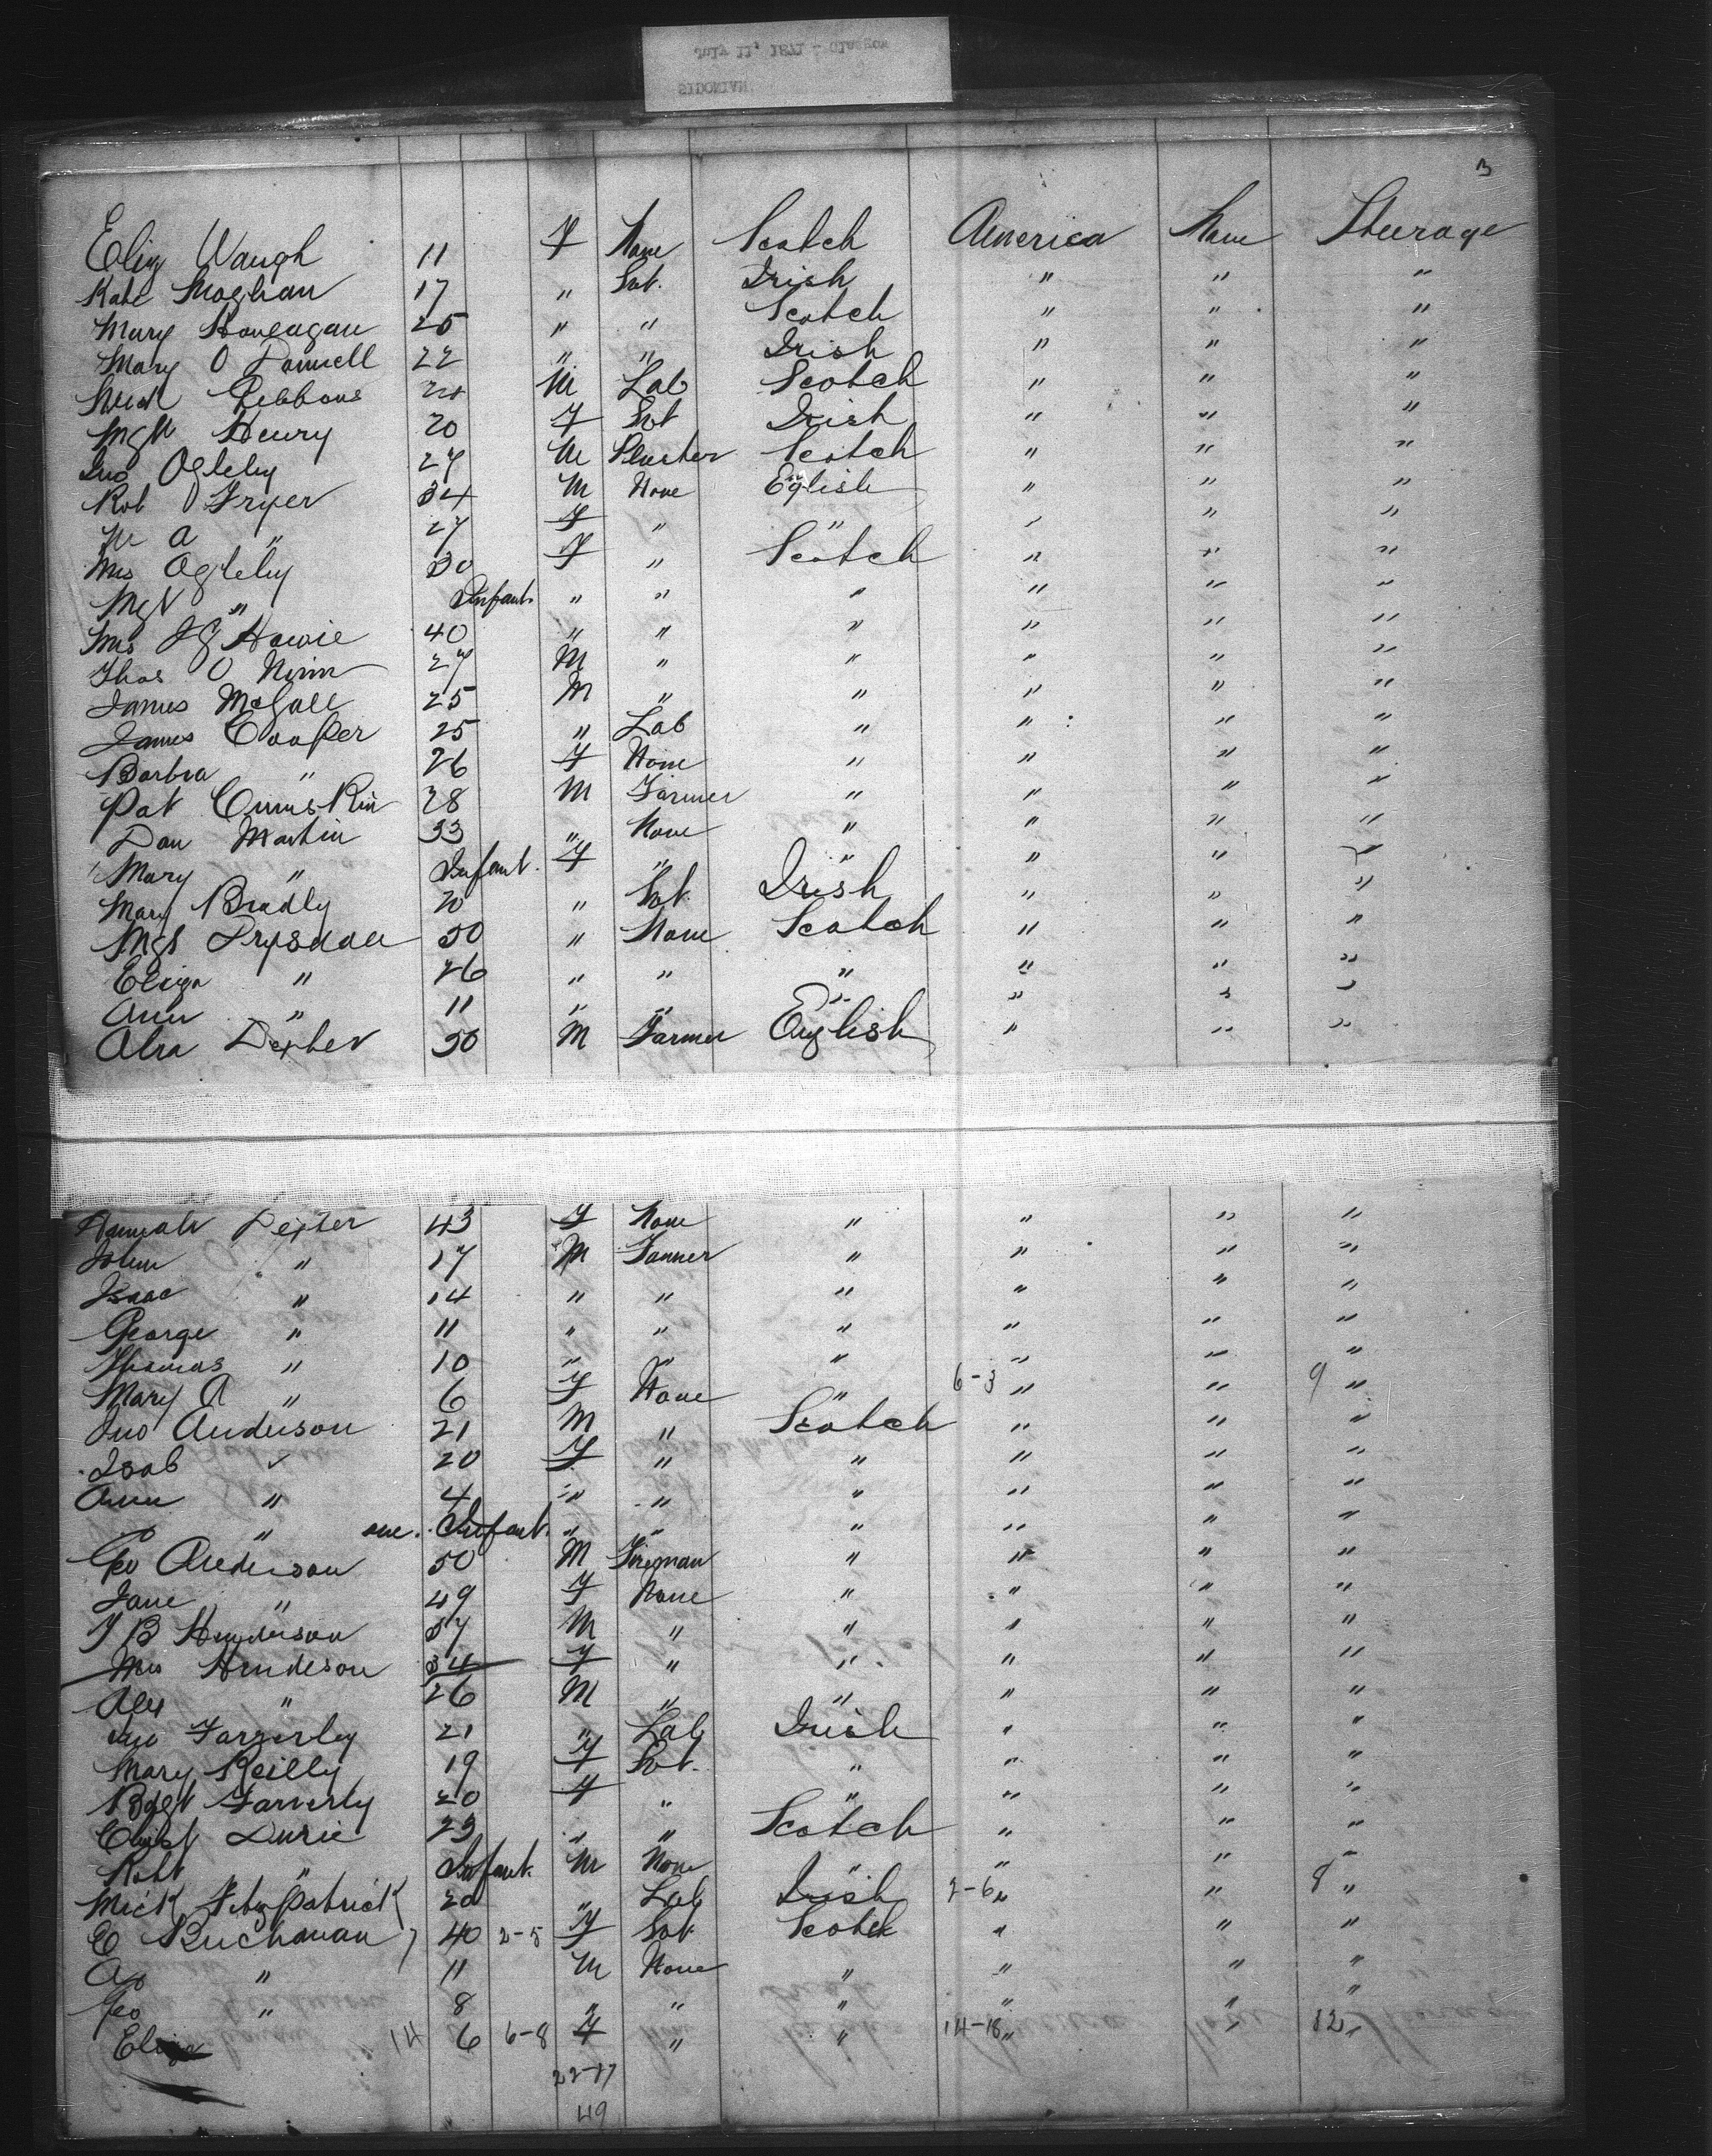 July 11, 1871 - Glasgow
SIDONIAN
3
Eliz Waugh 11 F None Scotch America None Steerage
Kate Moghan 17 " Svt. Irish " " "
Mary 25 " " Scotch " " "
Mary O Donnell 22 " " Irish " " "
Gibbons M Lab Scotch " " "
Mgt Henry 20 F Svt Irish " " "
Jno Ogleby 27 M Scotch " " "
Rob Fryer 34 M None Eglish " " "
M A " 27 F " " " " "
Mrs Ogleby 30 F " Scotch " " "
Mgt " Infant " " " " " "
Mrs J G Howie 40 " " " " " "
Thos O 27 M " " " " "
James McGall 25 M " " " " "
James Cooper 25 " Lab " " " "
Barbra " 26 F None " " " "
Pat 28 M Farmer " " " "
Dan Martin 33 " None " " " "
Mary " Infant. F " " " " "
Mary Bradly 20 " Svt Irish " " "
Mgt Drysdale 50 " None Scotch " " "
Eliza " 26 " " " " " "
Ann " 11 " " " " " "
Dexter 50 M Farmer English " " "
Hannah Dexter 43 F None " " " "
John " 17 M Farmer " " " "
Isaac " 14 " " " " " "
George " 11 " " " " " "
Thomas " 10 " " " " " "
Mary A " 6 F None " 6-3 " " 9 "
Jno Anderson 21 M " Scotch " " "
Isab " 20 F " " " " "
Ann " 4 " " " " " "
" one. Infant. " " " " " "
Geo Anderson 50 M Fireman " " " "
Jane " 49 F None " " " "
J B Henderson 37 M " " " " "
Mrs Henderson 34 F " " " " "
Alex " 26 M " " " " "
Jno 21 " Lab Irish " " "
Mary Reilly 19 F Svt. " " " "
Bdgt 20 F " " " " "
Christ Durie 23 " " Scotch " " "
Robt " Infant. M None " " " "
Mick Fitzpatrick 20 " Lab Irish 2-6 " " 8 "
C Buchanan 40 2-5 F Svt Scotch " " "
" 11 M None " " " "
Geo " 8 " " " " " "
Eliza 14 6 6-8 F " " 14-18 " " 12 "
22-17
49